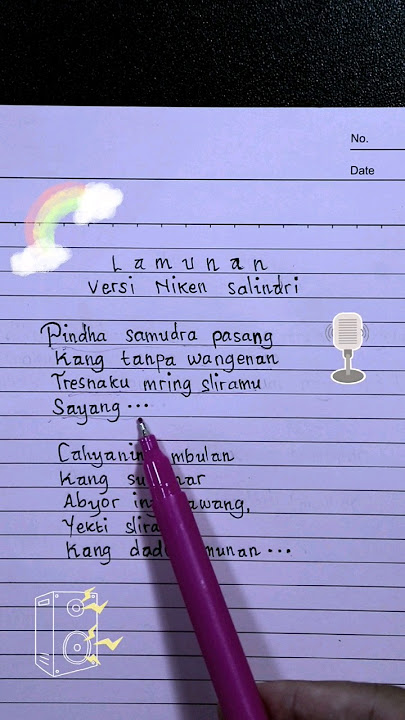 No.
Date
Lamunan
Versi Niken Salindri
Pindha samudra pasang
Kang tanpa wangenan
Tresnaku mring sliramu
Sayang...
Cahyaning mbulan
Kang
Abyor ing
Yekti
Kang